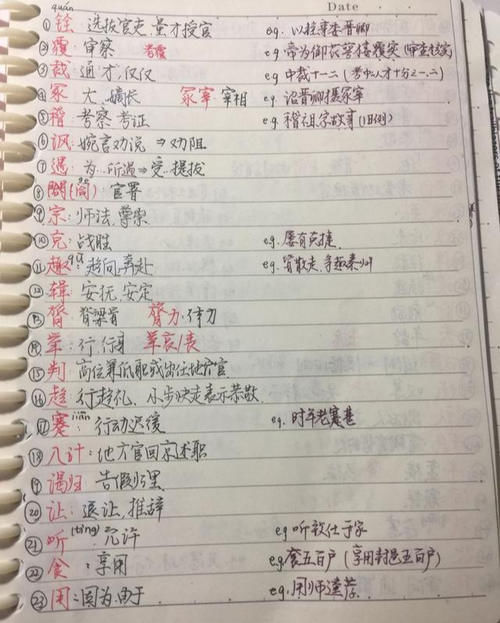 Date
quán
①铨 选拔官吏,量才授官 eg. 以铨事委晋卿
②覆 审察 考覆 eg 帝为御花萼楼覆实(审查核实)
③裁 通"才",仅仅 eg 中裁十一二(考中人才十分之一、二)
④冢 大、嫡长 冢宰 宰相 eg 诏晋卿摄冢宰
⑤稽 考察、考证 eg 稽祖宗故事(旧例)
⑥讽:婉言劝说 ⇒ 劝阻
⑦遇:为…所遇 ⇒ 受…提拔
⑧ 官署
⑨宗:师法,尊崇
⑩克:战胜 eg. 屡有克捷
⑪趣 qū 趋向,奔赴 eg.
⑫辑 安抚,安定
⑬膂 脊梁骨 膂力:体力
⑭ 行,行身
⑮判:高位兼低职或出任地方官
⑯趋 行趋礼,小步快走表示恭敬
⑰蹇 jiǎn:行动迟缓 eg. 时年老蹇甚
⑱入计:地方官回京述职
⑲谒归 告假归里
⑳让:退让,推辞
㉑听 (tīng) 允许 eg 听致仕于家
㉒食:享用 eg.食五百户(享用封邑五百户)
㉓用:因为,由于 eg.用师逵荐